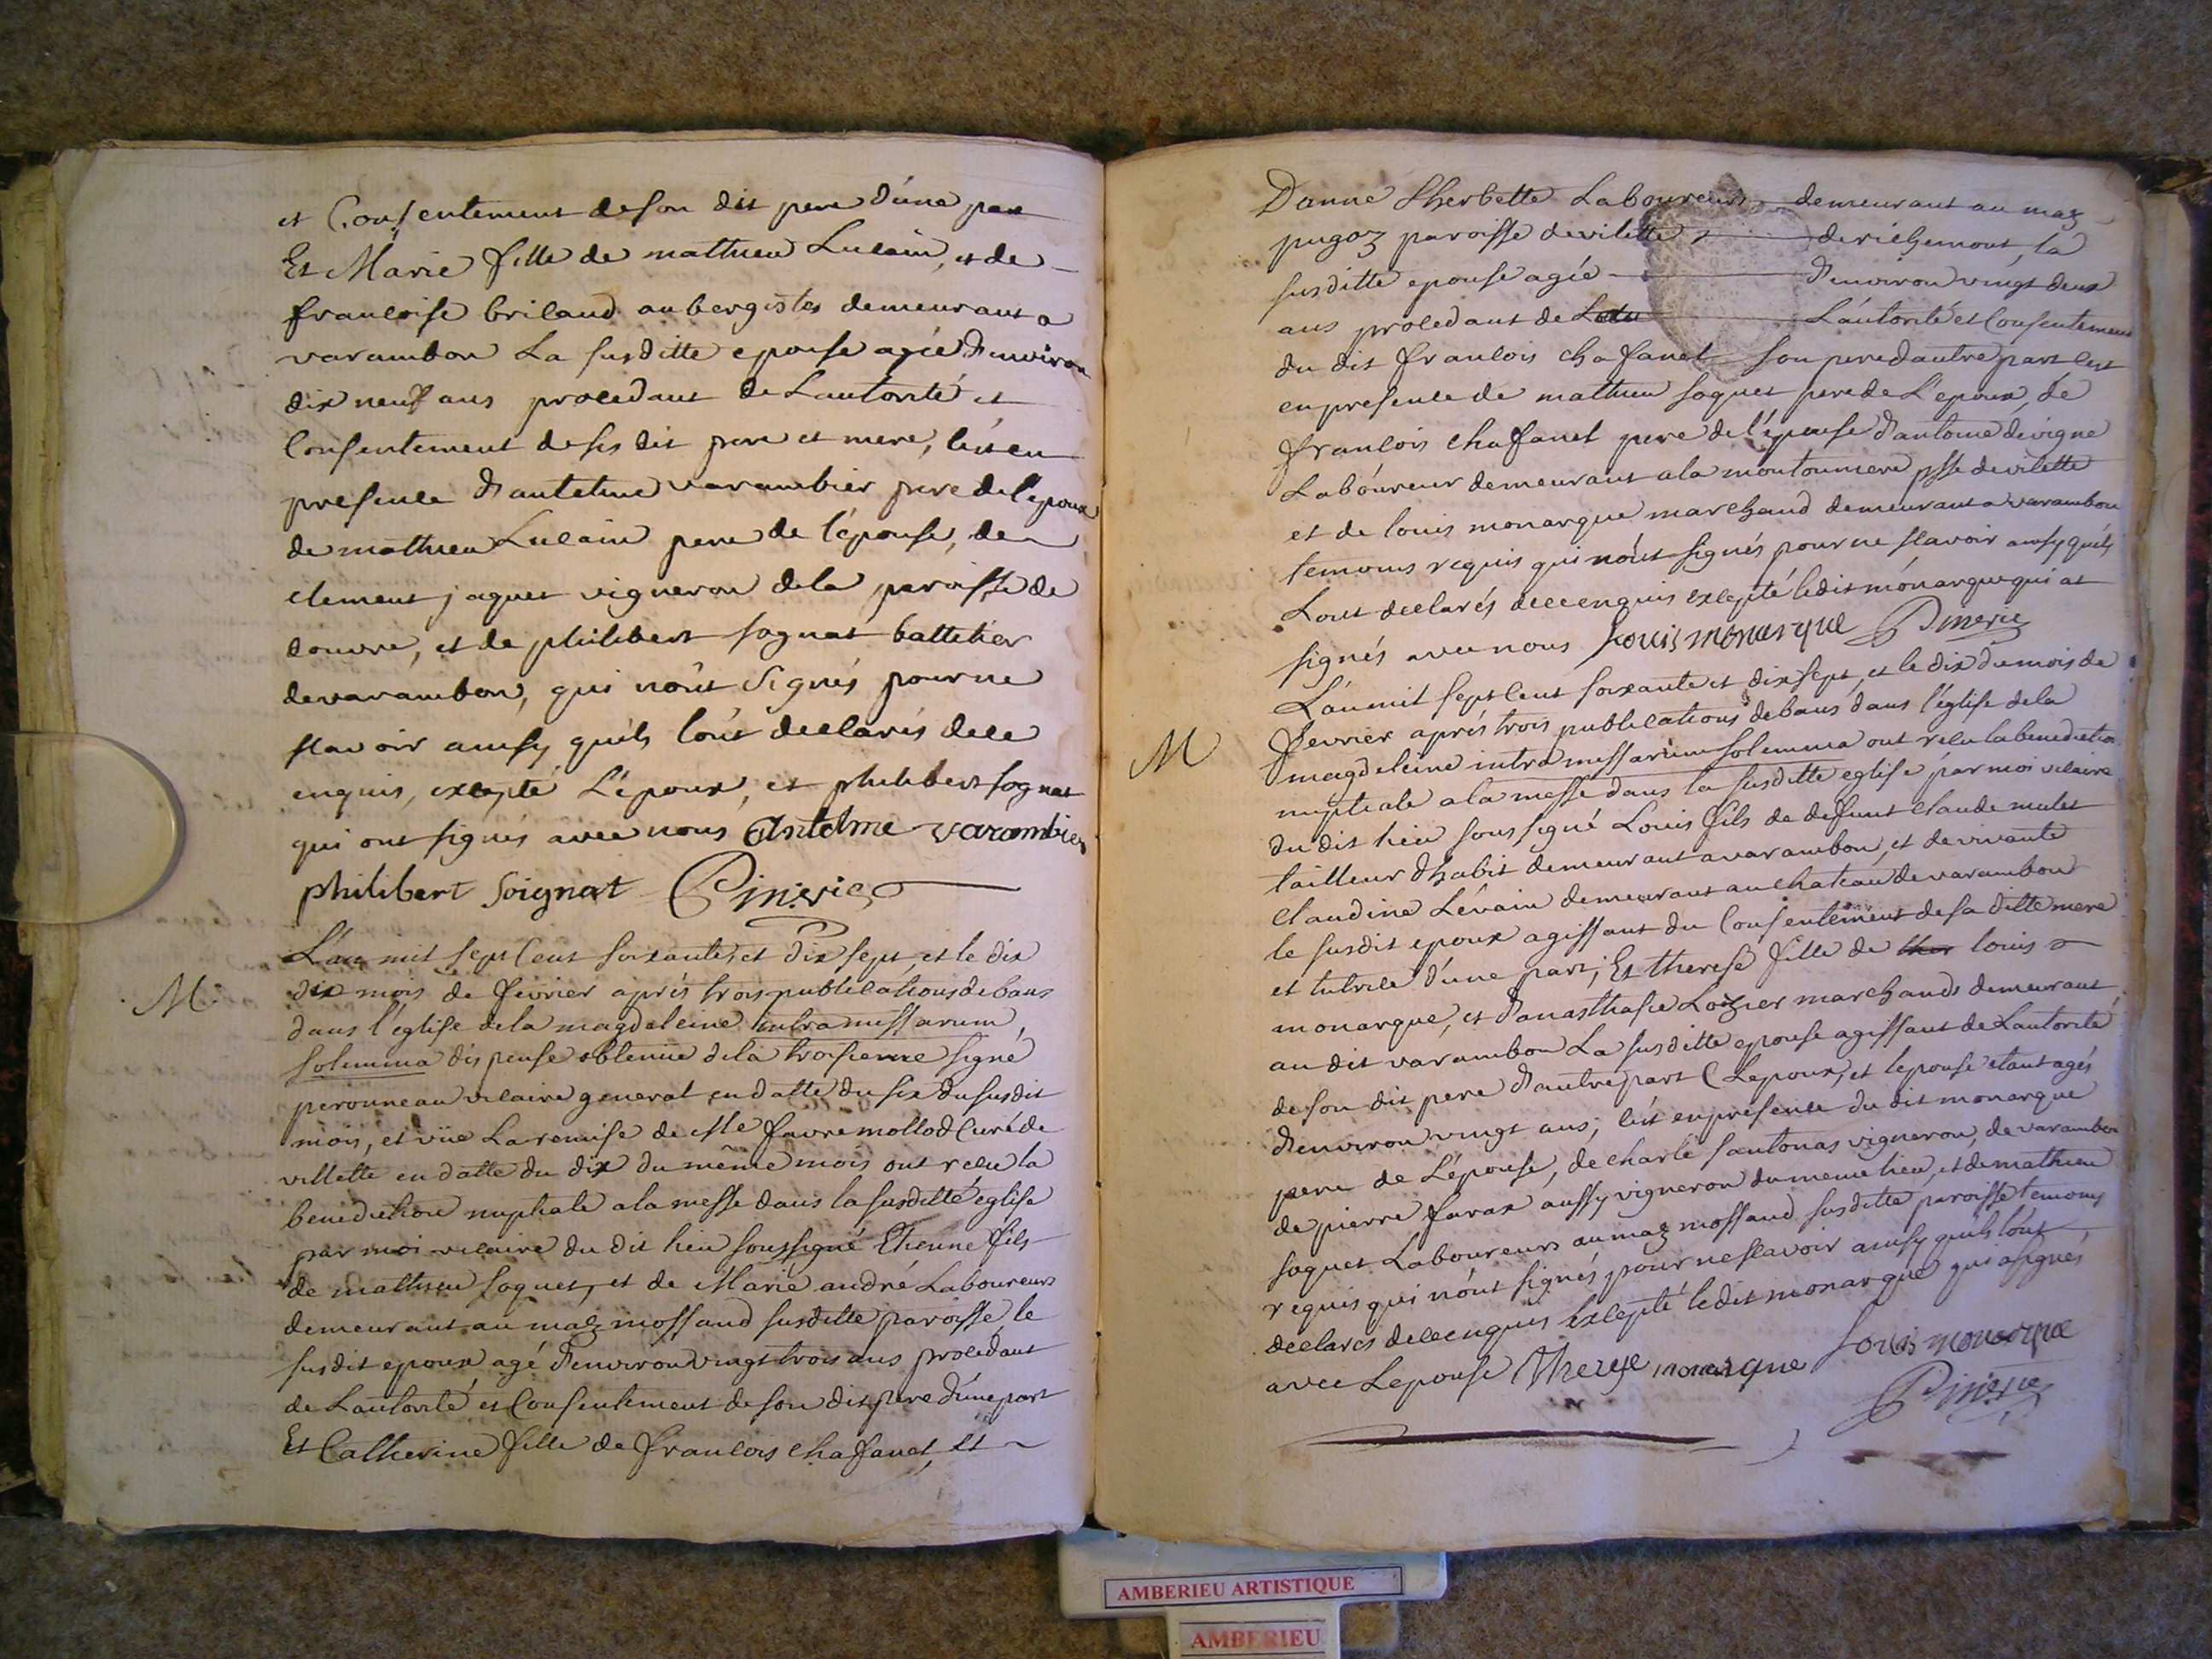 et Consentement de son dit pere d'une part
Et Marie fille de mathieu Lulain, et de
francoise briland aubergistes demeurant a
varambon La susditte epouse agée d'environ
dix neuf ans procedant de Lautorité et
Consentement de ses dit pere et mere, c'est en
presence d'antelme varambier pere de l'epoux
de mathieu Lulain pere de l'épouse, de
clement jaquet vigneron de la paroisse de
douvre, et de philibert sognat battelier
de varambon, qui n'ont signés pour ne
scavoir ainsy quils l'ont declarés de ce
enquis, excepté L'époux, et philibert sognat
qui ont signés avec nous Antelme varambier
philibert Soignat Pinerie
M
L'an mil sept Cent soixante, et dix sept, et le dix
dix mois de fevrier après trois publications de bans
dans l'eglise de la magdeleine intra missarum
solemnia dispense obtenue de la troisieme signé
peronneau vicaire general en datte du six du susdit
mois, et vüe La remise de Mre favre mollod Curé de
villette en datte du dix du même mois ont recu la
benediction nuptiale a la messe dans la susditte eglise
par moi vicaire du dit lieu soussigné Etienne fils
de mathieu soquet, et de Marie andré Laboureurs
demeurant au maz mossand susditte paroisse, le
susdit epoux agé d'environ vingt trois ans procedant
de Lautorité et Consentement de son dit pere d'une part
Et Catherine fille de francois chafanet, et
D'anne Sherbette Laboureurs demeurant au maz
pugoz paroisse de vilette de richemont, la
susditte epouse agée d'environ vingt deux
ans procedant de L'autorité et Consentement
du dit francois chafanet son pere d'autre part c'est
en presence de mathieu soquet pere de L'epoux, de
francois chafanet pere de l'épouse d'antoine devigne
Laboureur demeurant a la moutonniere psse de vilette
et de louis monarque marchand demeurant a varambon
temoins requis qui n'ont signés pour ne scavoir ainsy quils
L'ont declarés de ce enquis excepté le dit monarque qui at
signés avec nous Louis monarque Pinerie
M
L'an mil sept Cent soixante et dix sept, et le dix du mois de
fevrier après trois publications de bans dans l'église de la
magdeleine intra missarum solemnia ont recu la benediction
nuptiale a la messe dans la susditte eglise par moi vicaire
du dit lieu soussigné Louis fils de defunt claude mulet
tailleur d'habit demeurant a varambon, et de vivante
claudine Lévain demeurant au chateau de varambon
le susdit epoux agissant du Consentement de sa ditte mere
et tutrice d'une part; Et therese fille de louis
monarque, et d'anasthasie Lozier marchands demeurant
au dit varambon La susditte epouse agissant de Lautorité
de son dit pere d'autre part Lepoux, et lepouse etant agés
d'environ vingt ans; c'est en presence du dit monarque
pere de L'épouse, de charle santonas vigneron, de varambon
de pierre favax aussy vigneron du meme lieu, et de mathieu
soquet Laboureurs au maz mossand susditte paroisse temoins
requis qui n'ont signés pour ne scavoir ainsy quils l'ont
declarés de ce enquis Excepté le dit monarque qui a signés
avec Lepouse Therese monarque Louis monarque
Pinerie
AMBERIEU ARTISTIQUE
AMBERIEU